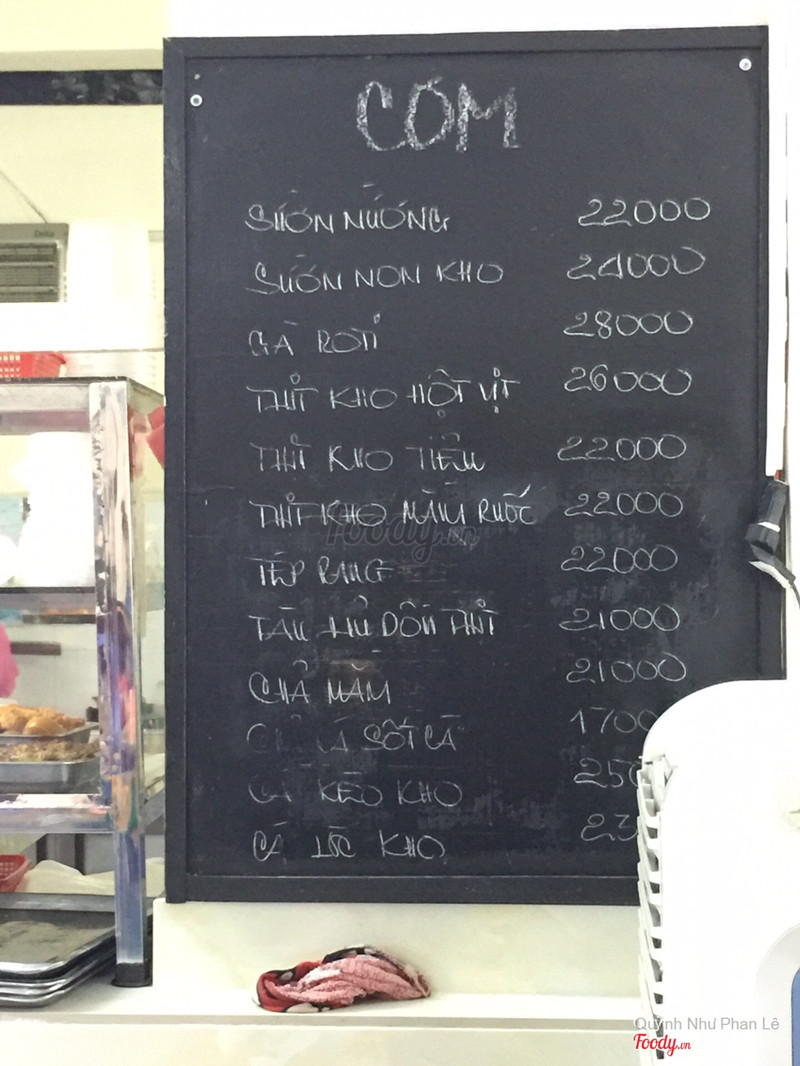 CƠM
SƯỜN NƯỚNG 22000
SƯỜN NON KHO 24000
GÀ ROTI 28000
THỊT KHO HỘT VỊT 26000
THỊT KHO TIÊU 22000
THỊT KHO MẮM RUỐC 22000
TÉP RANG 22000
TÀU HỦ DỒN THỊT 21000
CHẢ MẮM 21000
CÁ SỐT CÀ 1700
CÁ KÈO KHO 250
CÁ LÓC KHO 23
Delta
Foody.vn
Quỳnh Như Phan Lê
Foody.vn